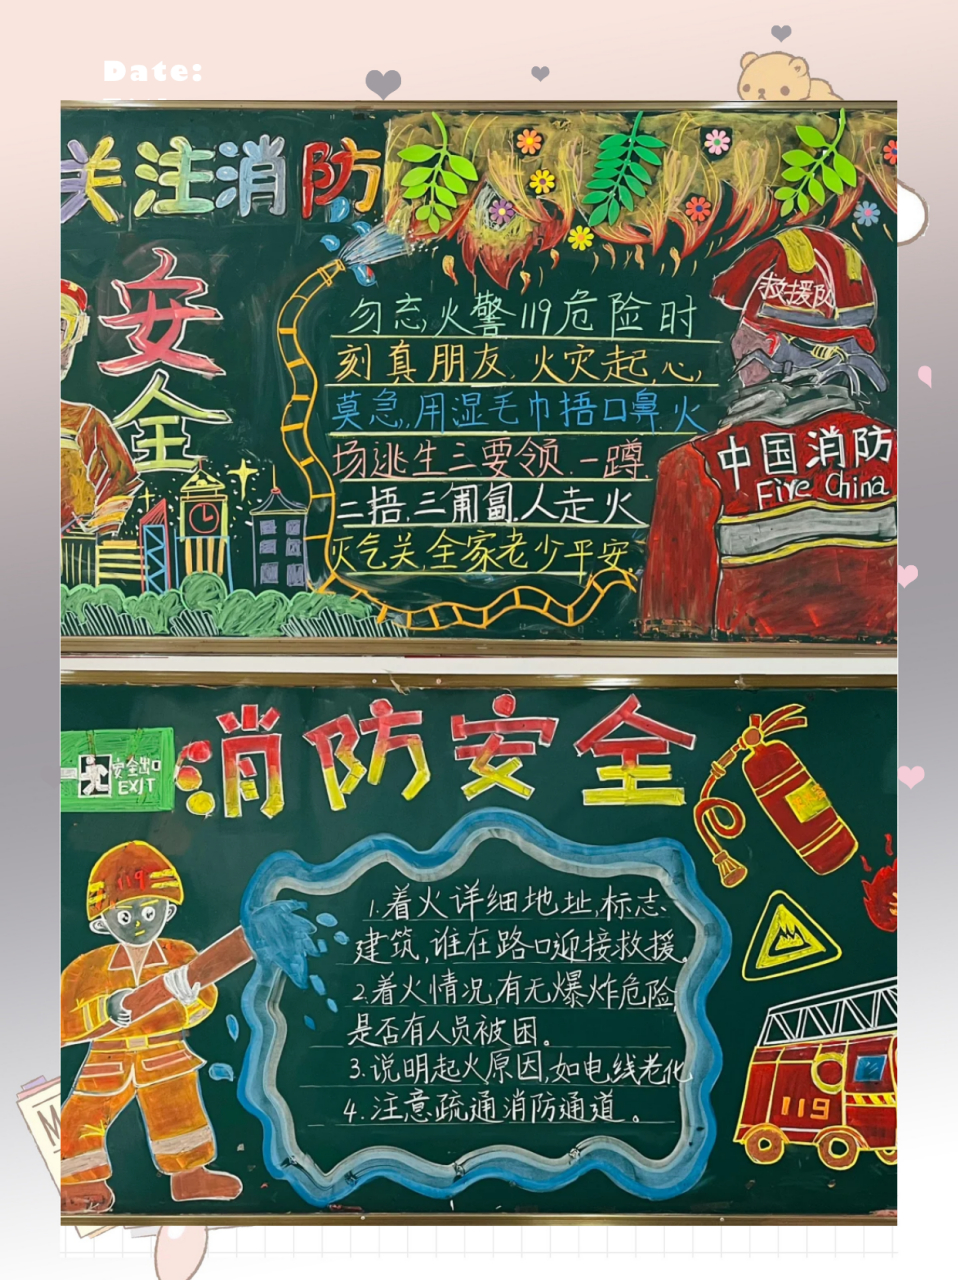 Date:
关注消防
安全
救援队
勿忘火警119危险时
刻真朋友,火灾起,心,
莫急,用湿毛巾捂口鼻,火
场逃生三要领,一蹲,
二捂,三匍匐,人走火
灭气关,全家老少平安
中国消防
Fire China
消防安全
安全出口
EXIT
119
1.着火详细地址,标志
建筑,谁在路口迎接救援。
2.着火情况,有无爆炸危险,
是否有人员被困。
3.说明起火原因,如电线老化
4.注意疏通消防通道。
119